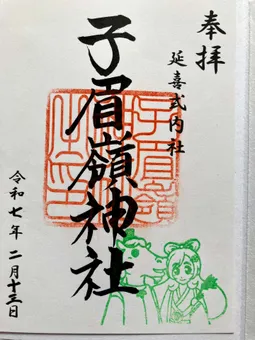 奉拝
延喜式内社
子眉嶺神社
令和七年 二月十三日